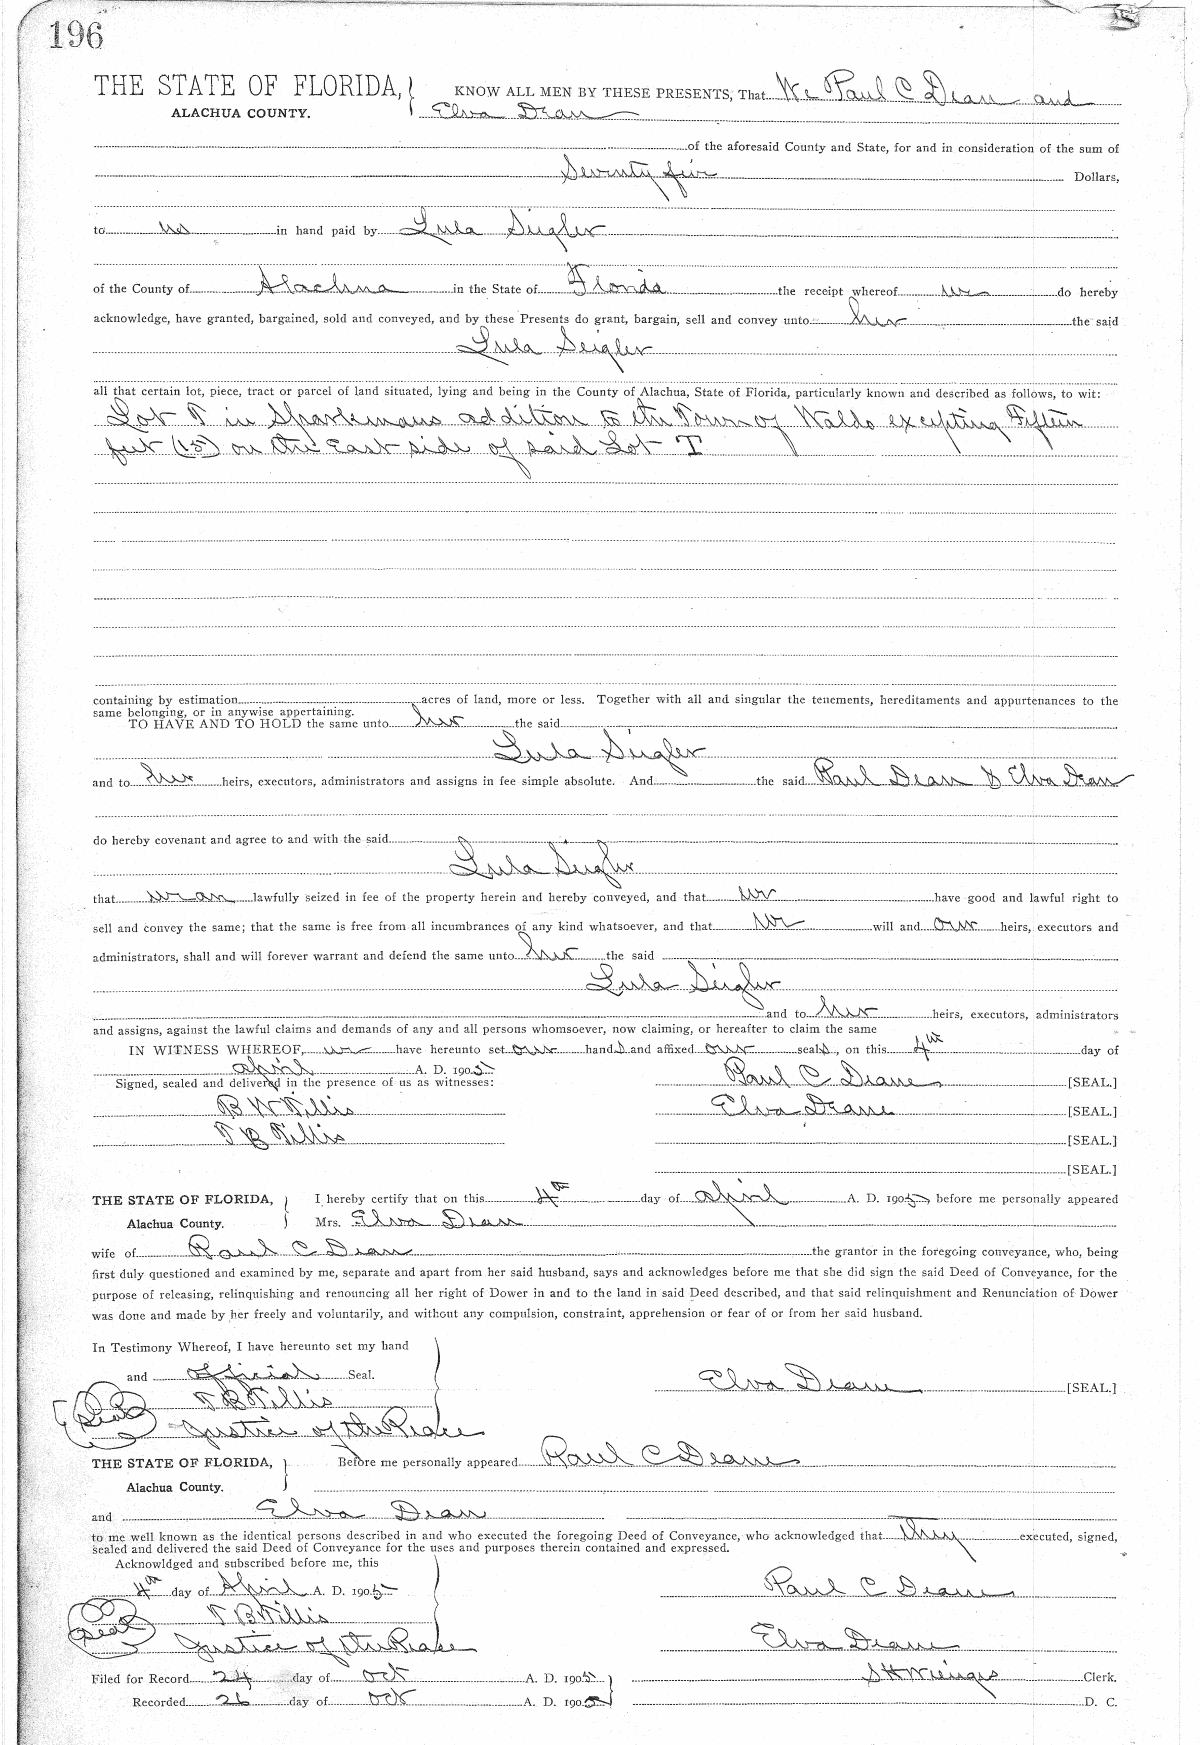 196
THE STATE OF FLORIDA, KNOW ALL MEN BY THESE PRESENTS, That We Paul C Dean and
ALACHUA COUNTY. Elva Dean
of the aforesaid County and State, for and in consideration of the sum of
Seventy five Dollars,
to us in hand paid by Lula Seigler
of the County of Alachua in the State of Florida the receipt whereof we do hereby
acknowledge, have granted, bargained, sold and conveyed, and by these Presents do grant, bargain, sell and convey unto her the said
Lula Seigler
all that certain lot, piece, tract or parcel of land situated, lying and being in the County of Alachua, State of Florida, particularly known and described as follows, to wit:
Lot T in Sparkmans addition to the Town of Waldo excepting Fifteen
feet (15) on the East side of said Lot T
containing by estimation acres of land, more or less. Together with all and singular the tenements, hereditaments and appurtenances to the
same belonging, or in anywise appertaining.
TO HAVE AND TO HOLD the same unto her the said
Lula Seigler
and to her heirs, executors, administrators and assigns in fee simple absolute. And the said Paul Dean & Elva Dean
do hereby covenant and agree to and with the said
Lula Seigler
that we are lawfully seized in fee of the property herein and hereby conveyed, and that we have good and lawful right to
sell and convey the same; that the same is free from all incumbrances of any kind whatsoever, and that we will and our heirs, executors and
administrators, shall and will forever warrant and defend the same unto her the said
Lula Seigler
and to her heirs, executors, administrators
and assigns, against the lawful claims and demands of any and all persons whomsoever, now claiming, or hereafter to claim the same
IN WITNESS WHEREOF, we have hereunto set our hands and affixed our seals, on this 4th day of
April A. D. 1905 Paul C Deane [SEAL.]
Signed, sealed and delivered in the presence of us as witnesses:
B W Tillis Elva Deane [SEAL.]
T B Tillis [SEAL.]
[SEAL.]
THE STATE OF FLORIDA, I hereby certify that on this 4th day of April A. D. 1905 before me personally appeared
Alachua County. Mrs. Elva Dean
wife of Paul C Dean the grantor in the foregoing conveyance, who, being
first duly questioned and examined by me, separate and apart from her said husband, says and acknowledges before me that she did sign the said Deed of Conveyance, for the
purpose of releasing, relinquishing and renouncing all her right of Dower in and to the land in said Deed described, and that said relinquishment and Renunciation of Dower
was done and made by her freely and voluntarily, and without any compulsion, constraint, apprehension or fear of or from her said husband.
In Testimony Whereof, I have hereunto set my hand
and official Seal. Elva Deane [SEAL.]
T B Tillis
Seal Justice of the Peace
THE STATE OF FLORIDA, Before me personally appeared Paul C Deane
Alachua County.
and Elva Dean
to me well known as the identical persons described in and who executed the foregoing Deed of Conveyance, who acknowledged that they executed, signed,
sealed and delivered the said Deed of Conveyance for the uses and purposes therein contained and expressed.
Acknowldged and subscribed before me, this
4th day of April A. D. 1905 Paul C Deane
T B Tillis
Seal Justice of the Peace Elva Deane
Filed for Record 24 day of Oct A. D. 1905 S H Wienges Clerk.
Recorded 26 day of Oct A. D. 1905 D. C.